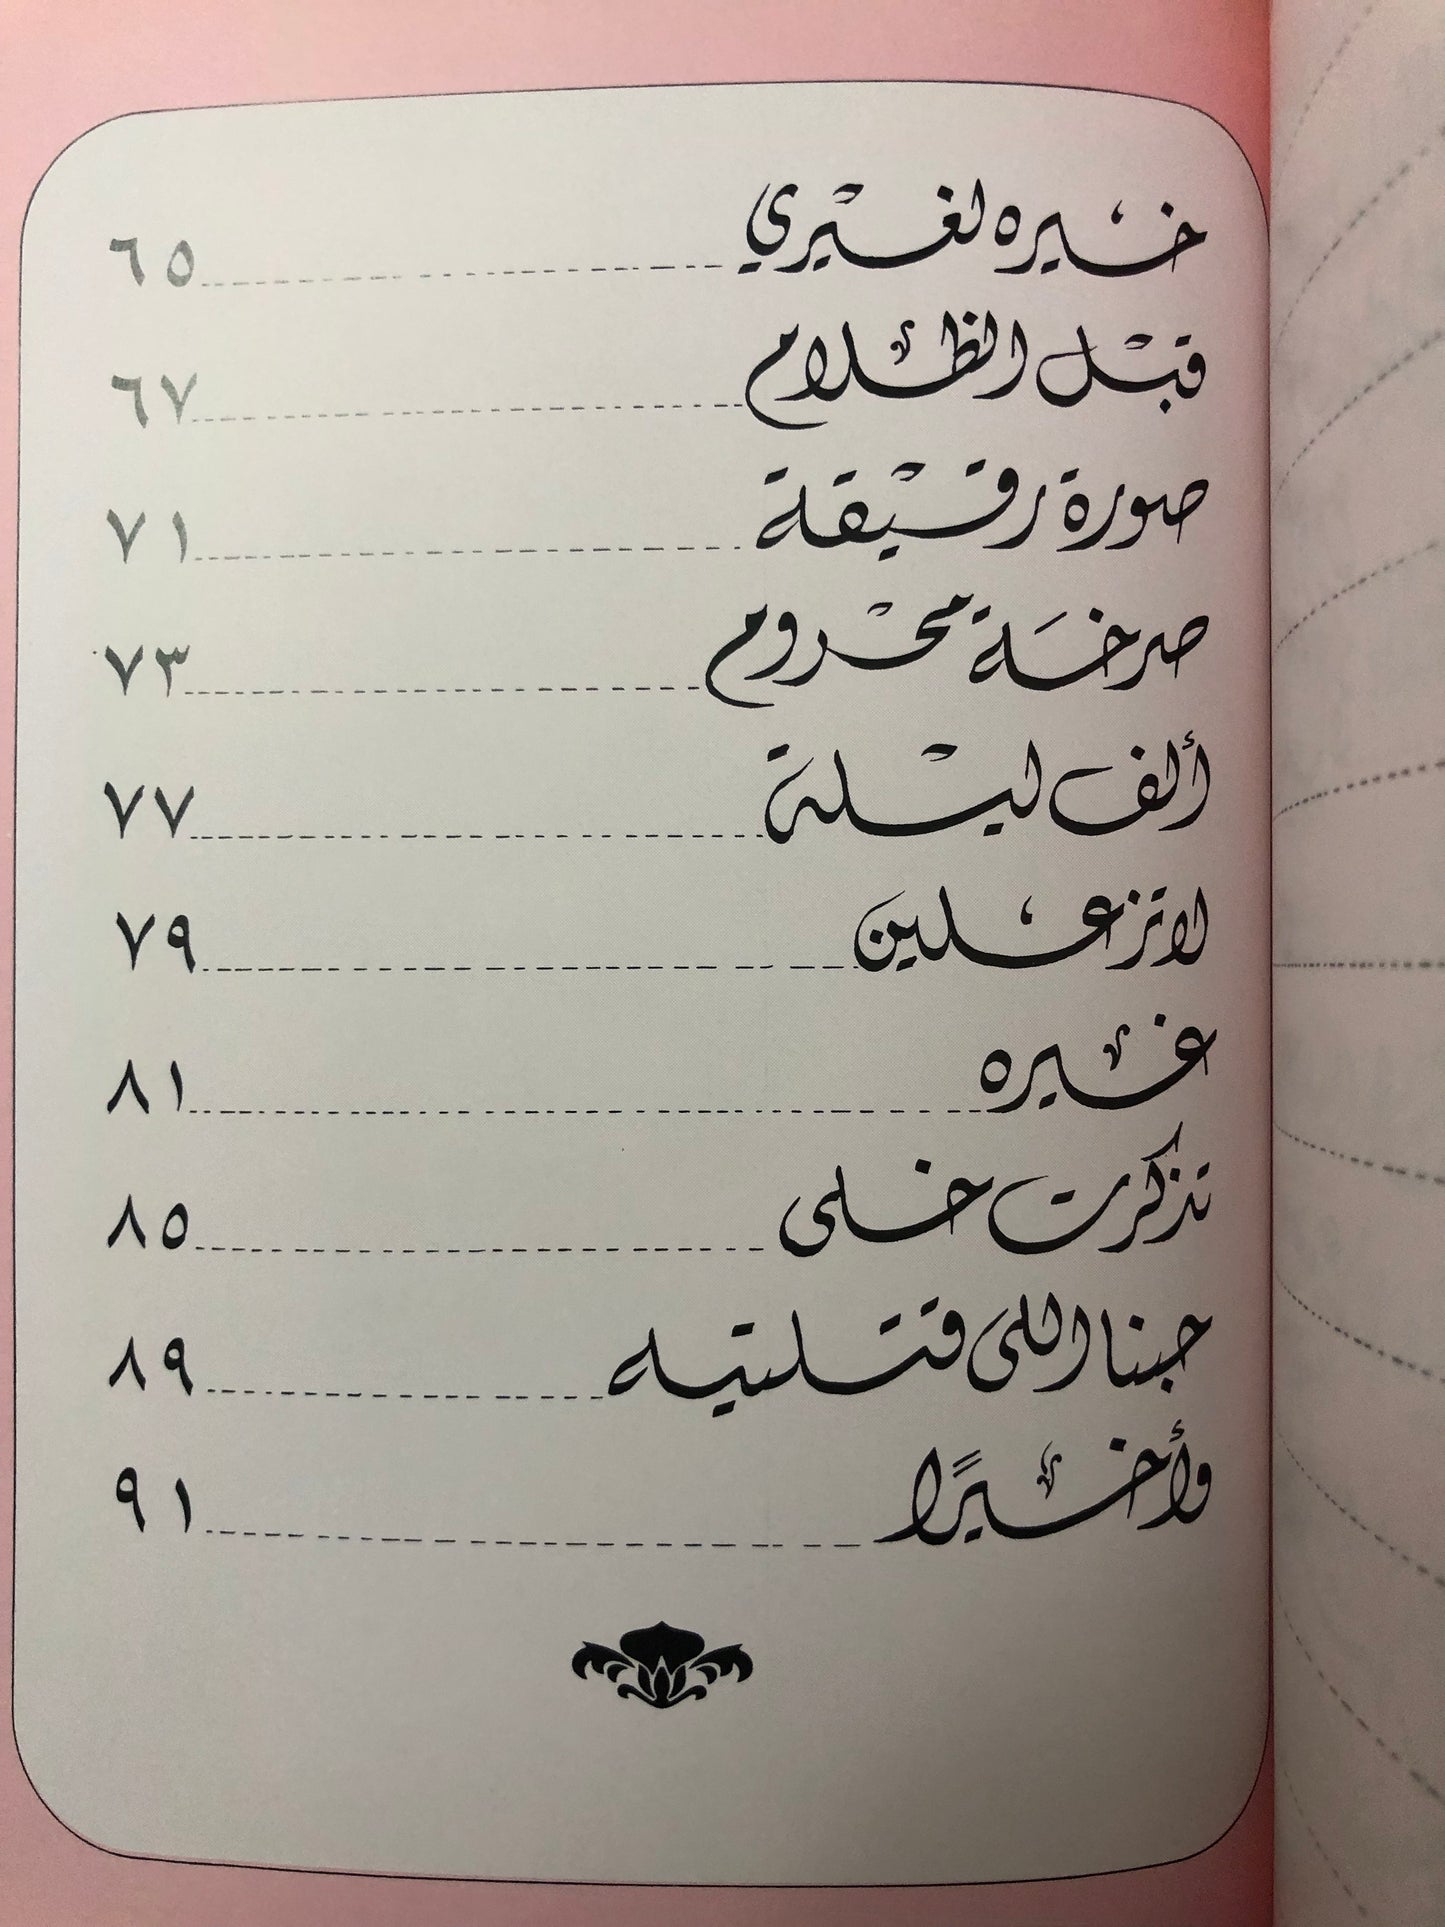 خيره لغيري ٦٥
قبل الظلام ٦٧
صورة رقيقة ٧١
صرخة محروم ٧٣
ألف ليلة ٧٧
لا تزعلين ٧٩
غيره ٨١
تذكرت خلي ٨٥
حبنا اللي قتلتيه ٨٩
وأخيرًا ٩١